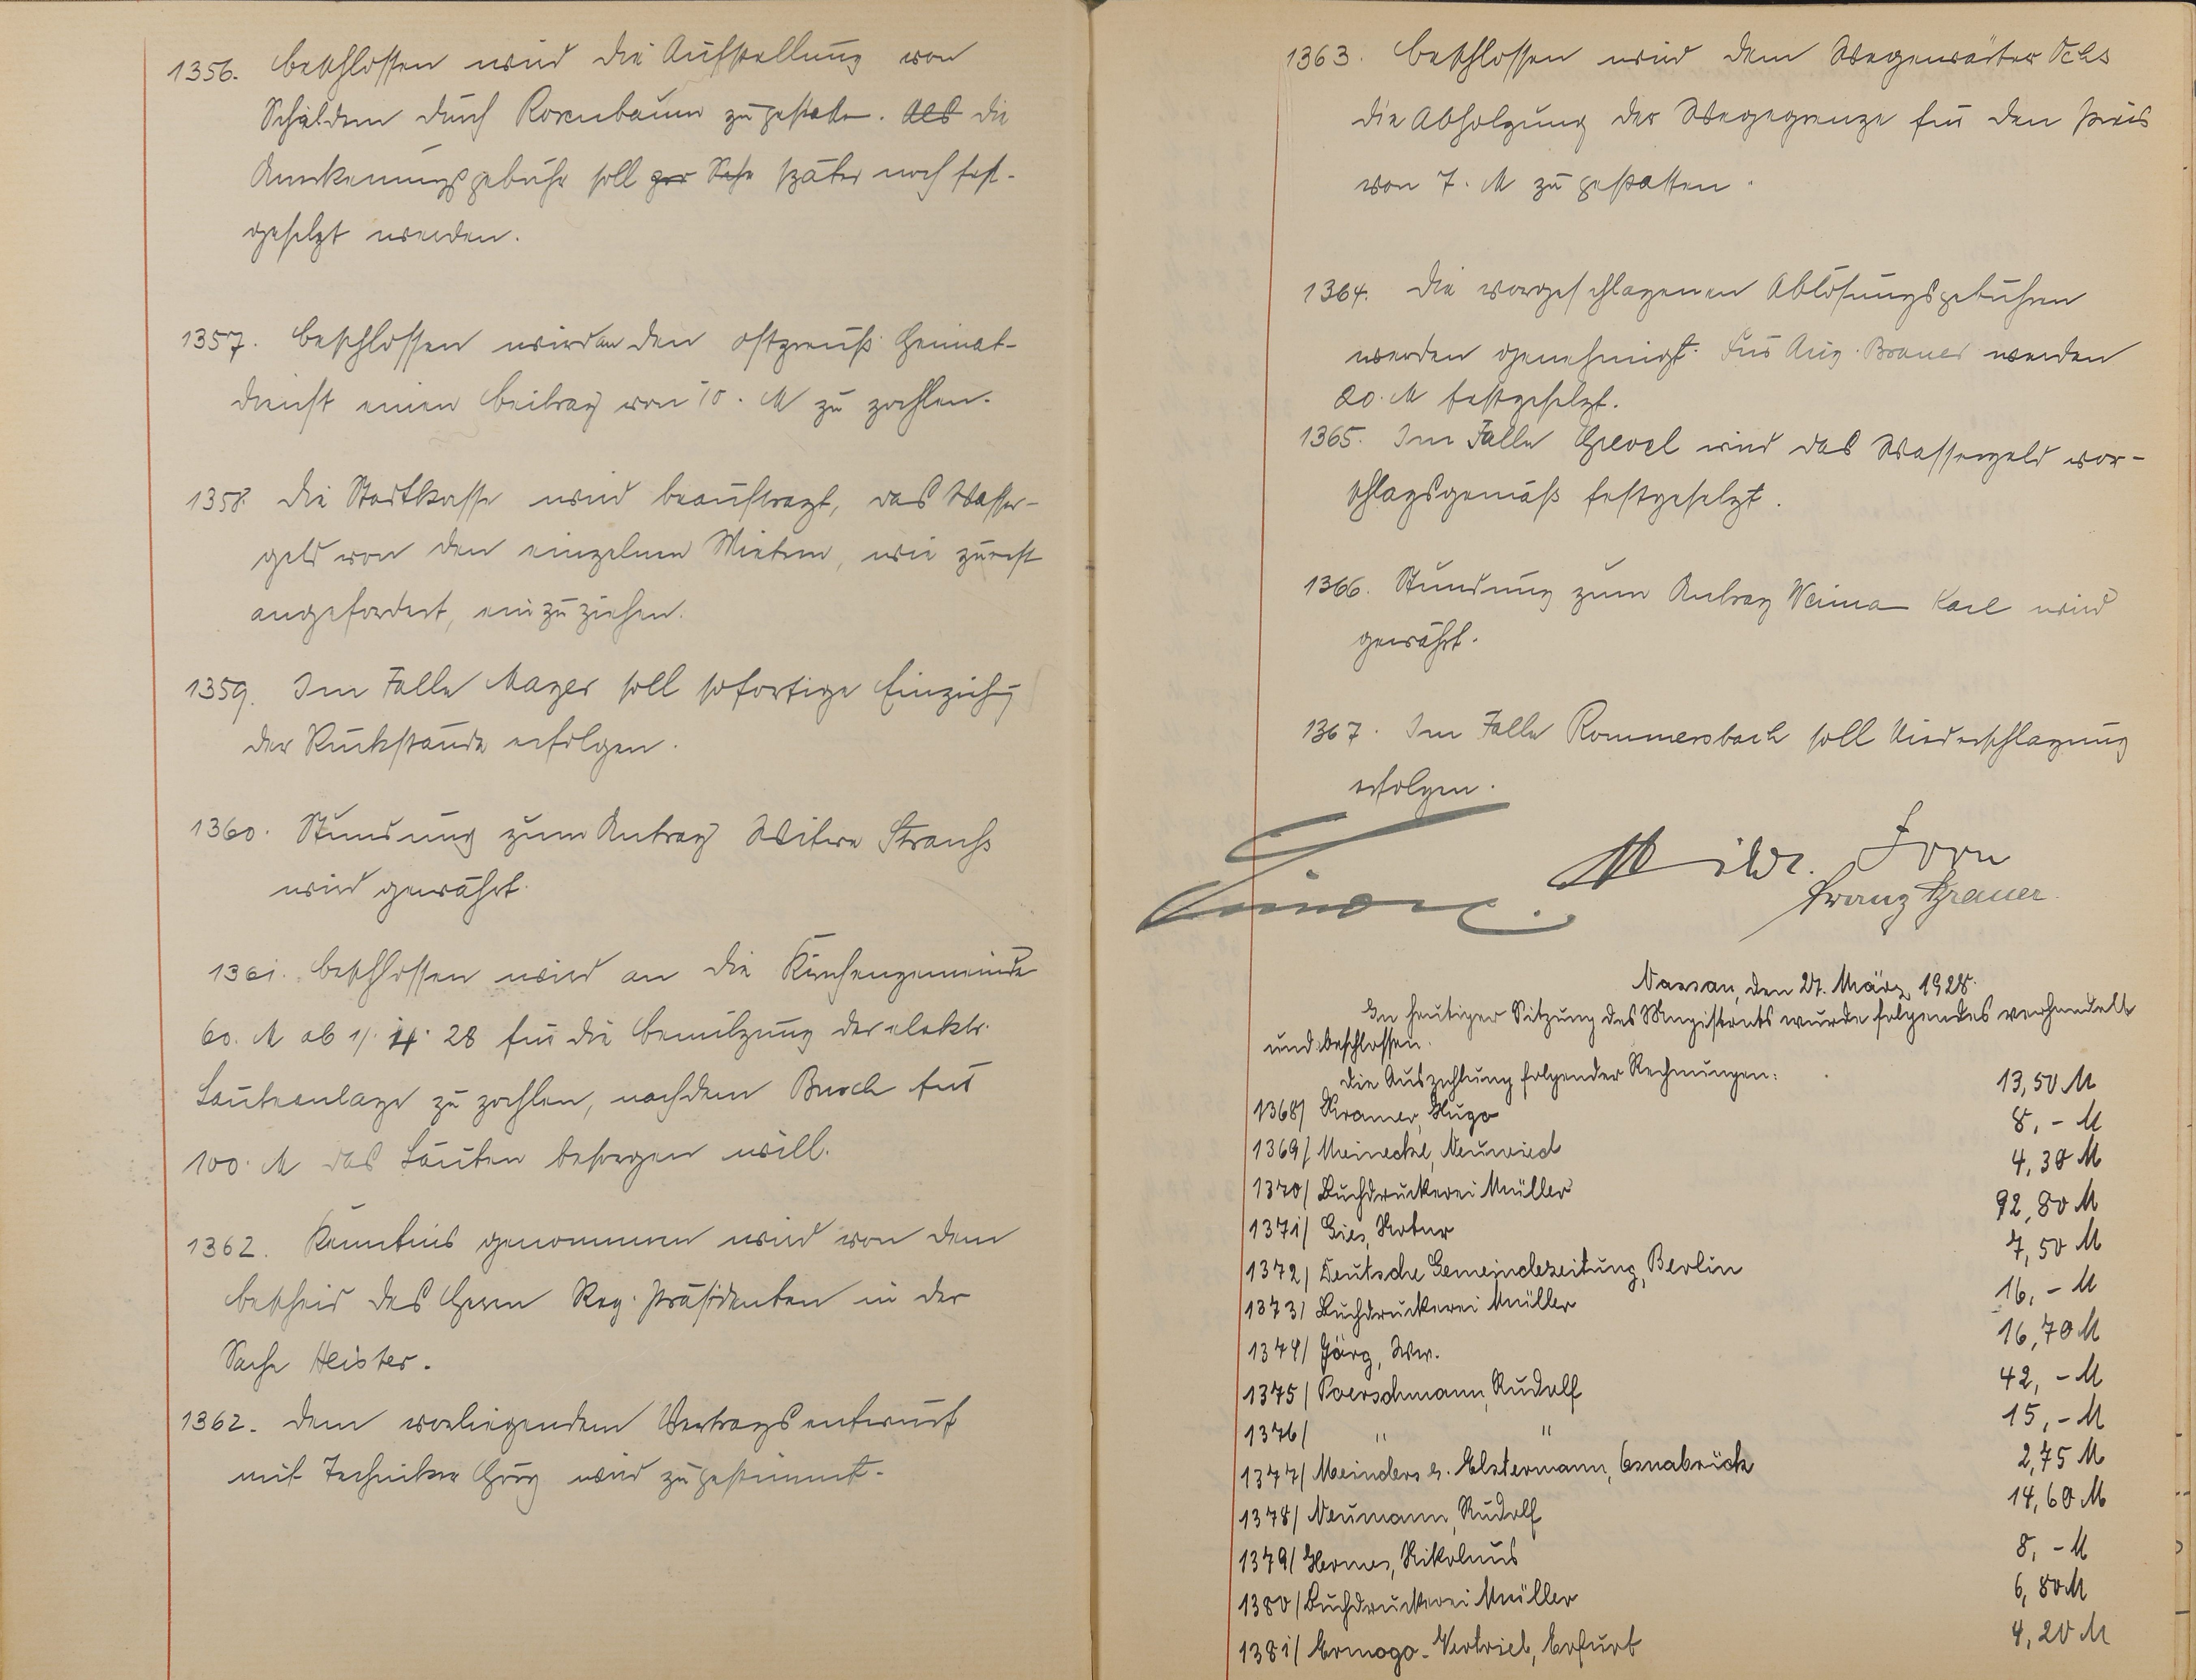 1356. Beschlossen wird die Aufstellung von
Schildern durch Rosenbaum zu gestatten. Als die
Anerkennungsgebühr soll später noch fest-
gesetzt werden.
1357. Beschlossen wird an den ostpreuß. Heimat-
dienst einen Beitrag von 10. M zu zahlen.
1358. Die Stadtkasse wird beauftragt, das Wasser-
geld von den einzelnen Mietern, wie zuerst
angefordert, einzuziehen.
1359. Im Falle Mayer soll sofortige Einziehg
der Rückstände erfolgen.
1360. Stundung zum Antrag Witwe Strauss
wird gewährt.
1361. Beschlossen wird an die Kirchengemeinde
60. M ab 1/. 4. 28 für die Benutzung der elektr.
Läuteanlage zu zahlen, nachdem Busch für
100. M das Läuten besorgen will.
1362. Kenntnis genommen wird von dem
Bescheid des Herrn Reg. Präsidenten in der
Sache Heister.
1362. Dem vorliegenden Vertragsentwurf
mit Techniker wird zugestimmt.
1363. Beschlossen wird dem Wegewärter Ochs
die Abholzung der Wegegrenze für den Preis
von 7. M zu gestatten.
1364. Die vorgeschlagenen Ablösungsgebühren
werden genehmigt. Für Aug. Brauer werden
20. M festgesetzt.
1365. Im Falle wird das Wassergeld vor-
schlagsgemäß festgesetzt.
1366. Stundung zum Antrag Weimar Karl wird
gewährt.
1367. Im Falle Rommersbach soll Niederschlagung
erfolgen.
Franz Brauer
Nassau, den 27. März 1928.
In heutiger Sitzung des Magistrats wurde folgendes verhandelt
und beschlossen.
Die Auszahlung folgender Rechnungen:
1368/ Kramer, Hugo 13,50 M
1369/ Meinecke, Neuwied 8,- M
1370/ Buchdruckerei Müller 4,30 M
1371/ Gies, Notar 92,80 M
1372/ Deutsche Gemeindezeitung, Berlin 7,50 M
1373/ Buchdruckerei Müller 16,- M
1374/ Jörg, Ww. 16,70 M
1375/ Poerschmann, Rudolf 42,- M
1376/ " " 15,- M
1377/ Meinders & Elstermann, Osnabrück 2,75 M
1378/ Neumann, Rudolf 14,60 M
1379/ Hermes, Nikolaus 8,- M
1380/ Buchdruckerei Müller 6,80 M
1381/ Ermogo-Vertrieb, Erfurt 4,20 M